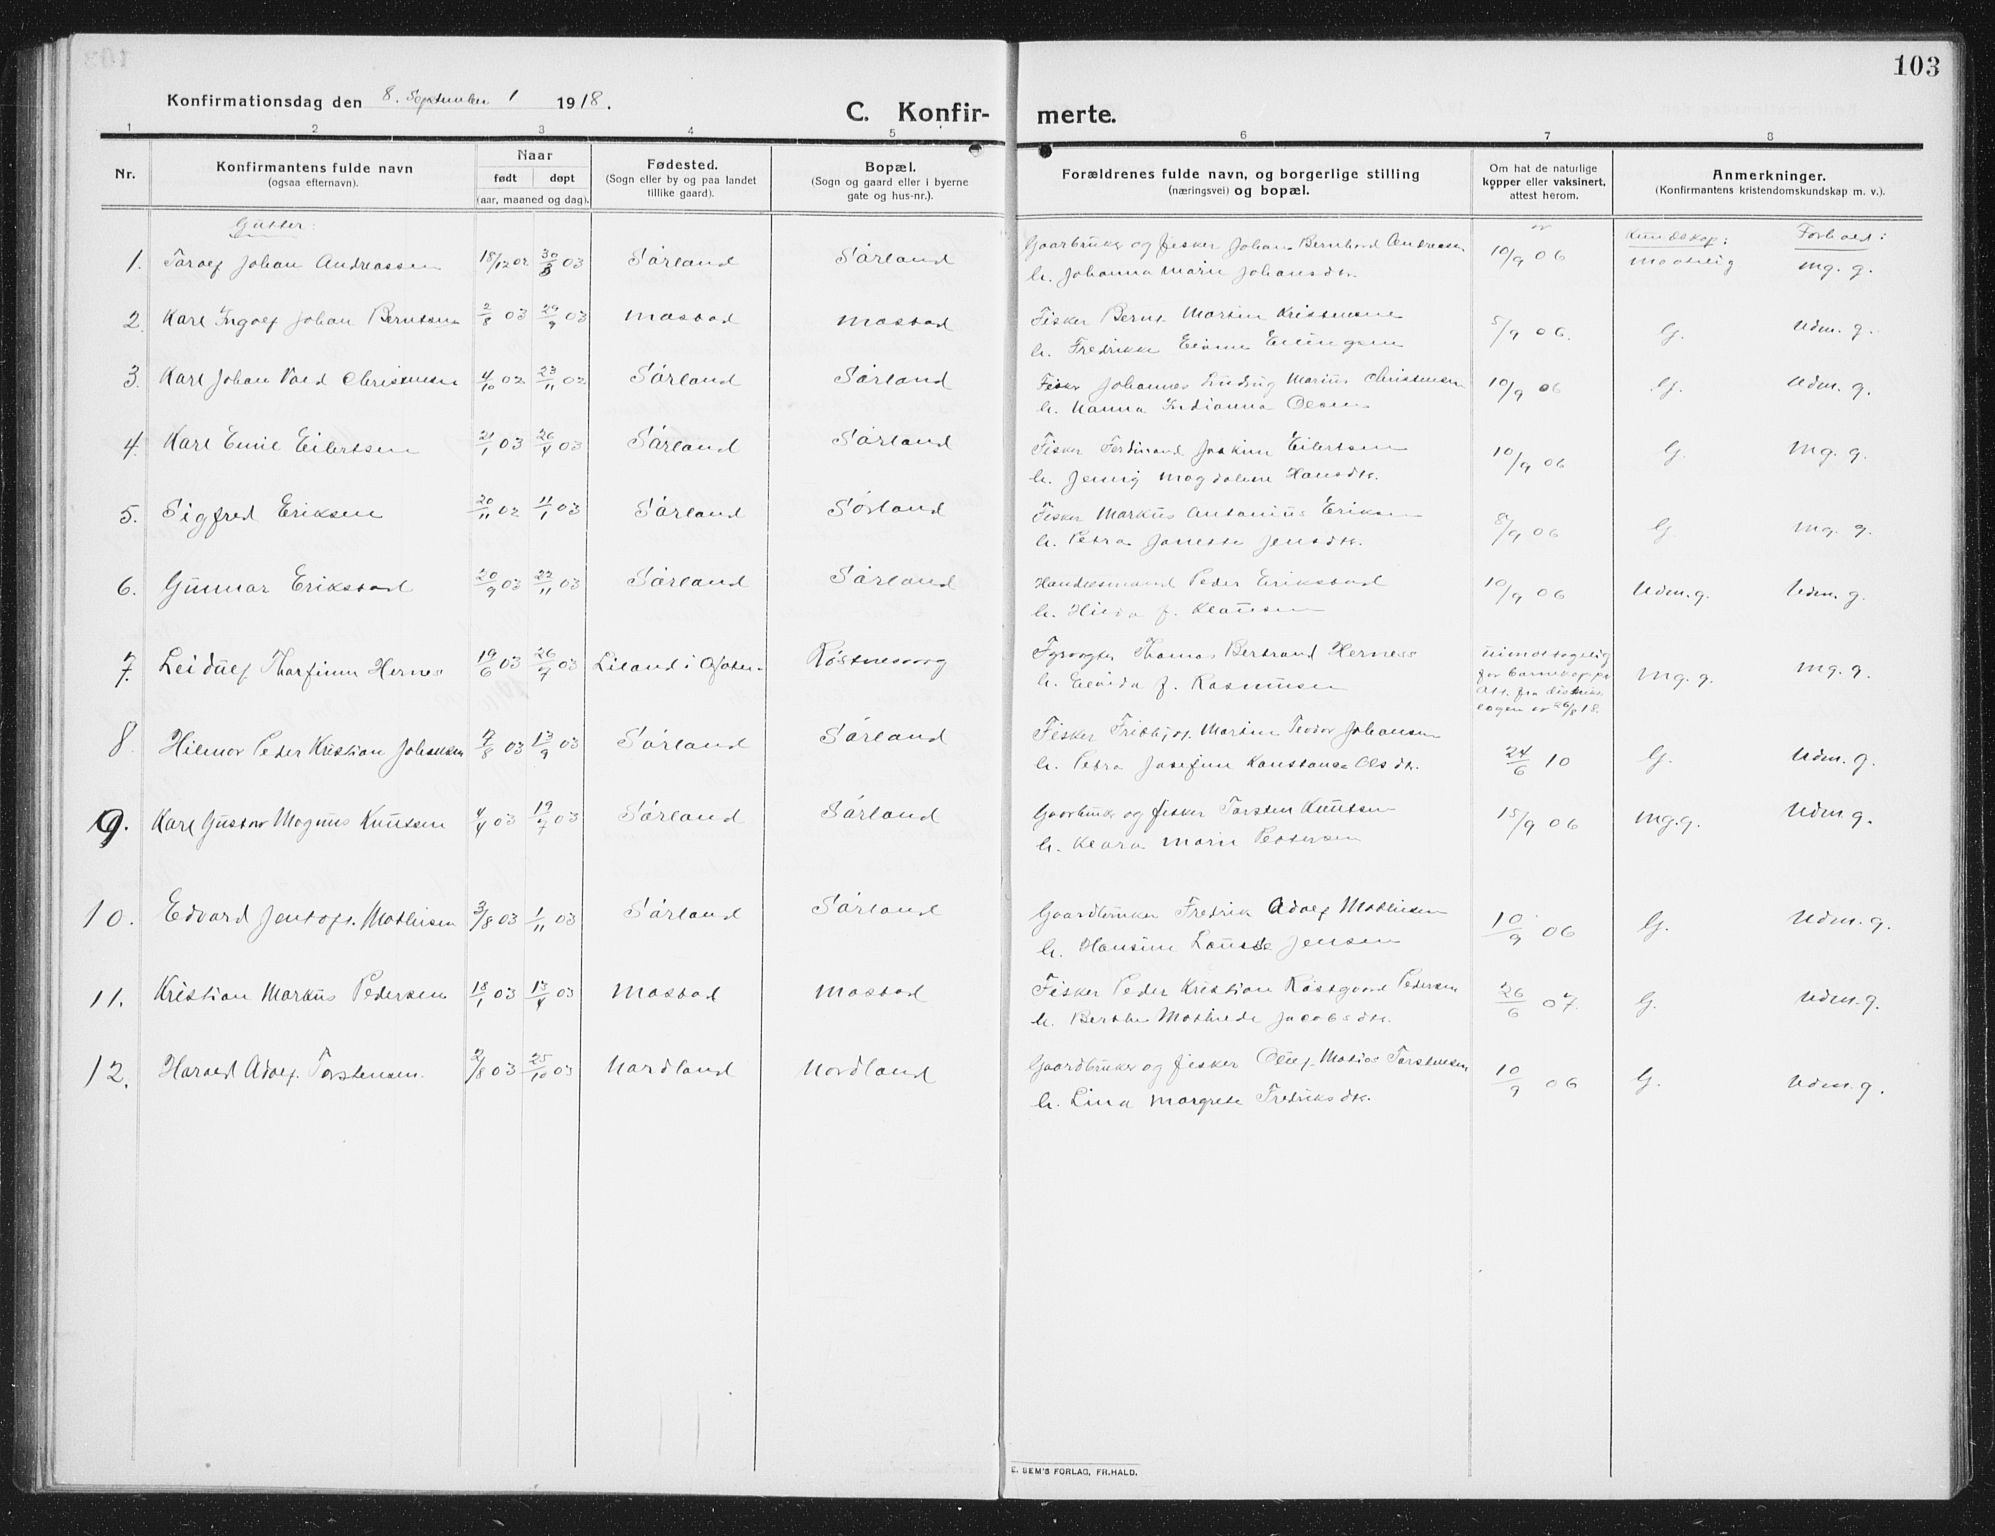 103
Konfirmationsdag den 8. September 1918.
C. Konfir- merte.
1 2 3 4 5 6 7 8
Nr.
Konfirmantens fulde navn
(ogsaa efternavn).
Naar
født døpt
(aar, maaned og dag).
Fødested.
(Sogn eller by og paa landet
tillike gaard).
Bopæl.
(Sogn og gaard eller i byerne
gate og hus-nr.).
Forældrenes fulde navn, og borgerlige stilling
(næringsvei) og bopæl.
Om hat de naturlige
kopper eller vaksinert,
attest herom.
Anmerkninger.
(Konfirmantens kristendomskundskap m. v.).
Gutter:
Kundskap: Forhold:
1. Toralf Johan Andreassen 18/12 02 30/3 03 Sørland Sørland Gaarbruker og fisker Johan Bernhard Andreassen 10/9 06 maatelig mg. g.
h. Johanna Marie Johansdtr.
2. Karl Ingolf Johan Berntsen 2/8 03 29/9 03 Mastad Mastad Fisker Bernt Martin Kristensen 5/9 06. G. Udm. g.
h. Fredrikke Elvine Ellingsen
3. Karl Johan Vold Christensen 4/10 02 23/11 02 Sørland Sørland Fisker Johannes Ludvig Marius Christensen 10/9 06 G. Udm. g.
h. Nanna Indianna Olsen
4. Karl Emil Eilertsen 21/1 03 26/4 03 Sørland Sørland Fisker Ferdinand Joakim Eilertsen 10/9 06 G. Mg. g.
h. Jenny Magdalene Hansdtr.
5. Sigfred Eriksen 20/11 02 11/1 03 Sørland Sørland Fisker Markus Antonius Eriksen 8/9 06 G. mg. g.
h. Petra Janette Jensdtr.
6. Gunnar Erikstad 20/9 03 22/11 03 Sørland Sørland Handelsmand Peder Erikstad 10/9 06 Udm. g. Udm. g.
h. Hilda f. Klausen
7. Leidulf Thorfinn Hernes 19/6 03 26/7 03 Liland i Ofoten Røstnesvaag Fyrvogter Thomas Bertrand Herness uimottagelig Mg. g. mg. g.
h. Elvida f. Rasmusen for barnekopper
Att. fra distrikts
lægen av 26/8 18.
8. Hilmar Peder Kristian Johansen 7/8 03 13/9 03 Sørland Sørland Fisker Fridtjof Martin Teodor Johansen 24/6 10 G. Udm. g.
h. Petra Josefine Konstanse Olsdtr.
9. Karl Gustav Magnus Knutsen 4/4 03 19/7 03 Sørland Sørland Gaarbruker og fisker Torsten Knutsen 15/9 06 mg. g. Udm g.
h. Klara Marie Pettersen
10. Edvard Jentoft Mathisen 3/8 03 1/11 03 Sørland Sørland Gaardbruker Fredrik Adolf Mathisen 10/9 06 G. Udm. g.
h. Hansine Lovise Jensen
11. Kristian Markus Pedersen 18/1 03 13/4 03 Mastad Mastad Fisker Peder Kristian Røstgaard Pedersen 26/6 07. G. Udm. g.
h. Berthe Mathilde Jacobsdtr.
12. Harald Adolf Torstensen 2/8 03 25/10 03 Nordland Nordland Gaardbruker og fisker Oluf Matias Torstensen 10/9 06 G. Udm. g.
h. Lina Margrete Fredriksdtr.
E. SEM'S FORLAG, FR.HALD.